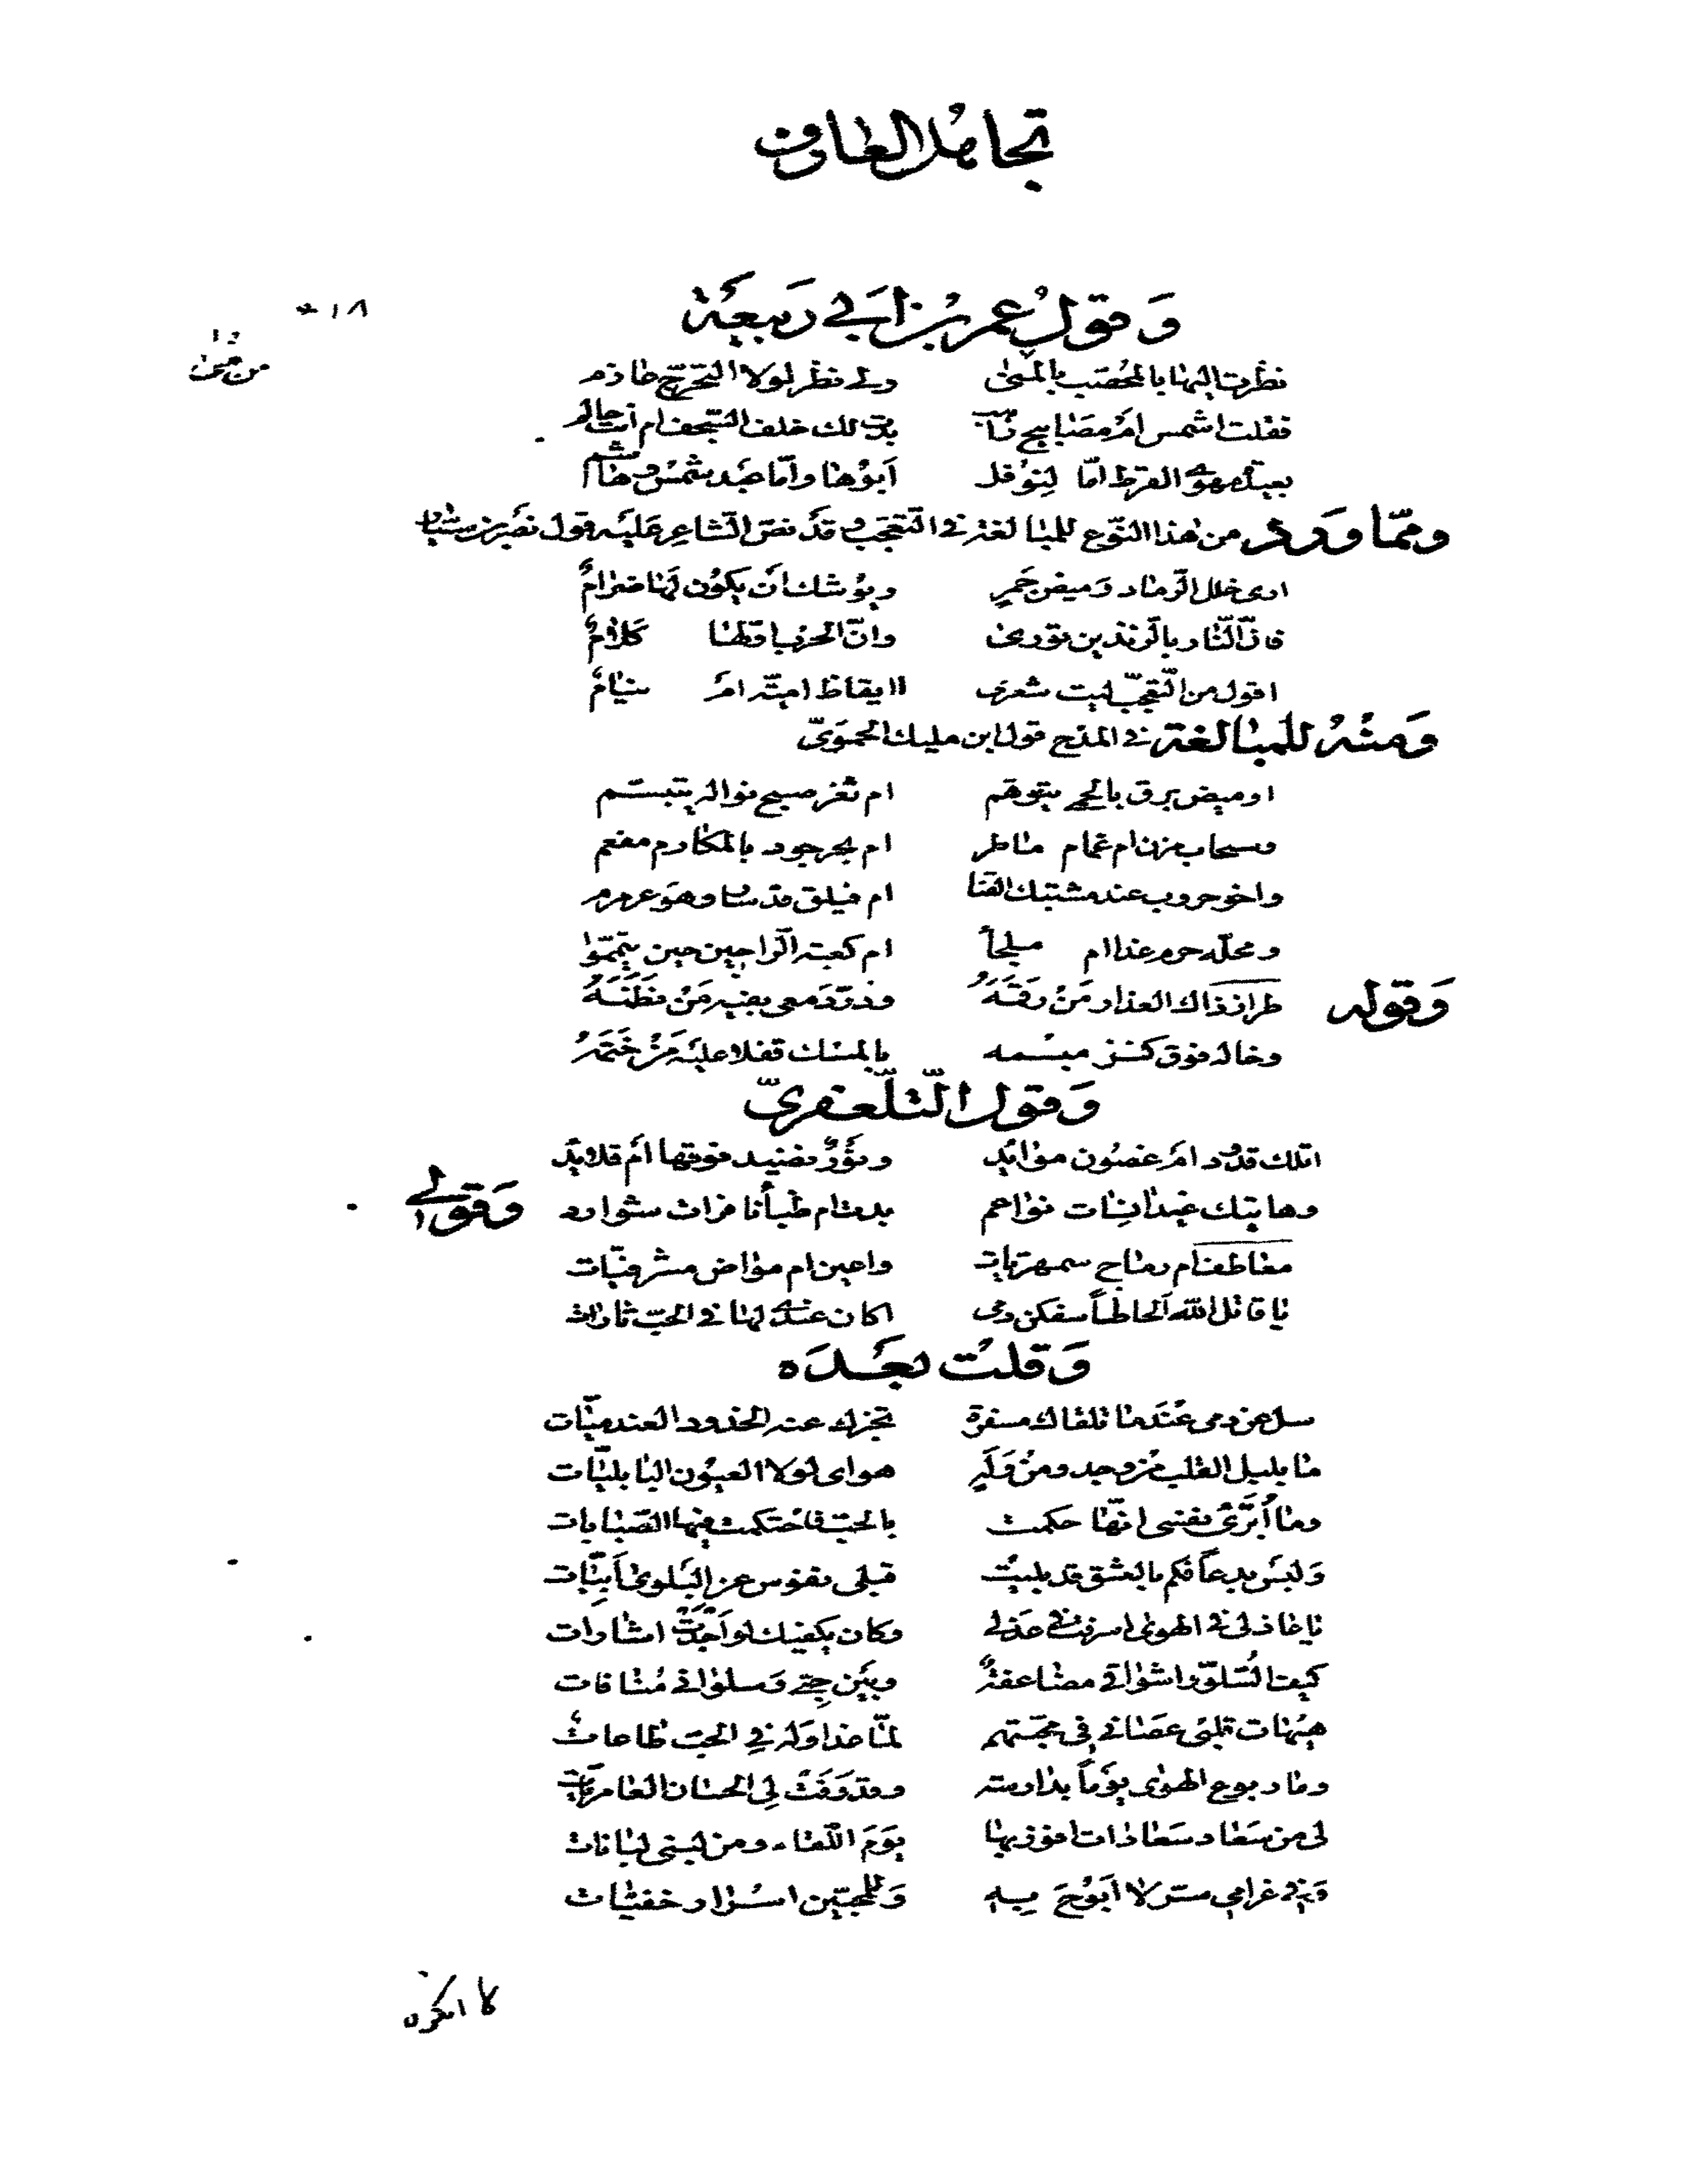 تجاهل العارف
وَقولُ عمر بن اَبي رَبيعَة
نظرت اليها بالمحصّب بالمنىٰ ولي نظر لولا التحرّج عازم
فقلت اشمس امْ مصَابيح بدت لك خلف السّجف ام انت حالم
بعيدة مهوى القرط امّا لِنوْفل اَبوُها وامّا عبْد شمْس وهاشم
وممّا وَرد من هٰذا النّوع للمبالغة في التّعجّب وقدْ نصّ الشّاعِر عَليْه قول نصْر بن سيّار
ارى خلل الرّماد وَميض جَمرٍ ويوُشك أن يكوُن لهَا ضرامُ
فانّ النّار بالزندين تورىٰ وانّ الحرْب اوّلهٰا كَلامُ
اقول من التّعجّب ليت شعري اايقاظ اميّة امْ نيٰامُ
وَمنهُ للمبٰالغة في المدْح قول ابن مليك الحموَيّ
اوميض برق بالحمى يتوهّم ام ثغر صبح نواله يتبسّم
وسحاب مزن ام غمام ماطر ام بحر جود بالمكارم مفعم
واخو حروب عند مشتبك القنا ام فيلق قد سار وهو عرمرم
ومحلّه حرم غدا ام ملجأ ام كعبة الرّاجين حين ييمّموا
وَقوله طراز ذاك العذار مَنْ رَقمَهُ ودرّ دَمعي بفيه مَنْ نظَمَهُ
وخاله فوق كنز مبسمه بالمسك قفلا عليْه مَنْ خَتمَهُ
وَقول التّلّعفريّ
اتلك قدُود امْ غصُون موٰائِد ونَوْرٌ نضيد فوقها امْ قلايِد
وهاتيك غيد انسٰات نوٰاعم بدت ام ظبأ نافرات شوارد
وَقولي
معٰاطف ام رمٰاح سمهريّات واعين ام موٰاض مشرفيّات
يا قاتل الله الحاظاً سفكن دمي اكان عندي لهٰا في الحبّ ثارات
وَقلْت بَعْدَه
سل عن دمى عنْدمٰا تلقاك مسفرة تخبرك عنه الخدود العندميّات
مٰا بلبل القلب منْ وجد ومنْ وَلَهٍ هواي لولا العيوُن البابليّات
ومٰا أُبرّئ نفسي انّها حكمت بالحبّ فاحْتكمت فيها الصّبابات
وَليْسَ بدعاً فكم بالعشق قد بليتْ قبلي نفوس عن البَلوىٰ أَبيّات
يا عٰاذلى في الهوىٰ اسرفت في عذلي وكان يكفيك لو أجْدَتْ اشارات
كيف السّلوّ واشوٰاقي مضٰاعفةٌ وبيْن حبّي وَسلوٰاني مُنٰافات
هيْهات قلبي عصَاني في محبّتهم لمّا غدا وَله في الحبّ طاعات
ومٰا ربوع الهوى يوْماً بدارسة وقد وَفَتْ لي الحسٰان العٰامريّات
لى من سعَاد سعَادات افوز بهٰا يوْمَ اللّقاء ومن لبنى لبٰانات
وَفي غرامي سرّ لا ابوُحَ بِه وَللمحبّين اسْرٰار وخفيّات
لا انكره